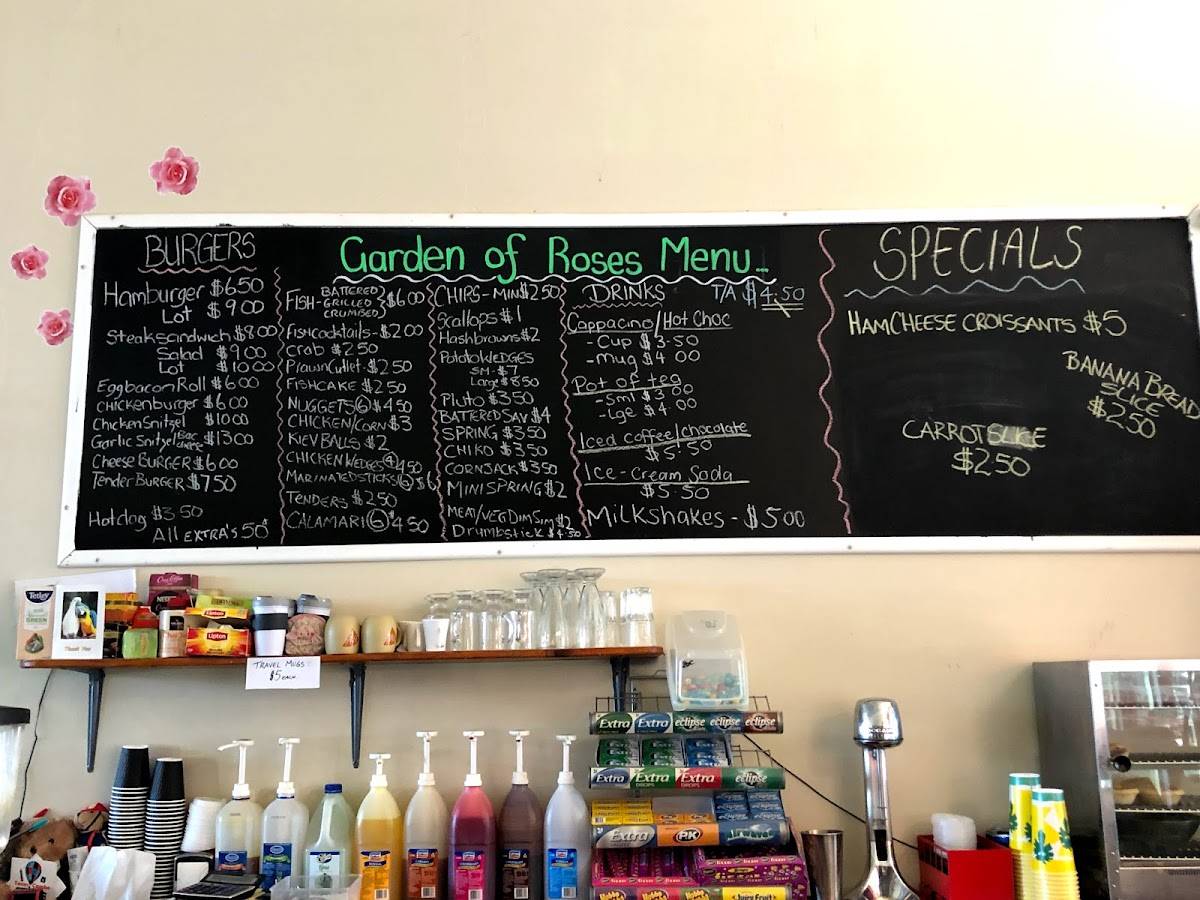 BURGERS
Hamburger $6.50
Lot $9.00
Steaksandwich $8.00
Salad $9.00
Lot $10.00
Egg bacon Roll $6.00
Chickenburger $6.00
Chicken Snitzel $10.00
Garlic Snitzel $13.00
Cheese BURGER $6.00
Tender BURGER $7.50
Hotdog $3.50
All EXTRA'S 50¢
Garden of Roses Menu...
FISH - BATTERED
GRILLED
CRUMBED
$6.00
Fishcocktails - $2.00
Crab $2.50
Prawn Cutlet - $2.50
FISHCAKE $2.50
NUGGETS (6) $4.50
CHICKEN/CORN $3
KIEV BALLS $2
CHICKEN WEDGES (4) 4.50
MARINATED STICKS (6) $6
TENDERS $2.50
CALAMARI (6) $4.50
CHIPS - MIN $2.50
Scallops $1
Hashbrowns $2
Potato WEDGES
SM - $7
Large $8.50
Pluto $3.50
BATTERED SAV $4
SPRING $3.50
CHIKO $3.50
CORNJACK $3.50
MINI SPRING $2
MEAT/VEG DIM SIM $2
Drumbstick $4.50
DRINKS T/A $4.50
Cappacino/Hot Choc
- Cup $3.50
- Mug $4.00
Pot of tea
- Sml $3.00
- Lge $4.00
Iced coffee/chocolate
$5.50
Ice-Cream Soda
$5.50
Milkshakes - $5.00
SPECIALS
HAM CHEESE CROISSANTS $5
BANANA BREAD
SLICE
$2.50
CARROT SLICE
$2.50
Tetley
Thank You
Lipton
Lipton
TRAVEL MUGS
$5 EACH
Extra Extra eclipse eclipse eclipse
Extra Extra Extra eclipse
Extra PK
Juicy Fruit